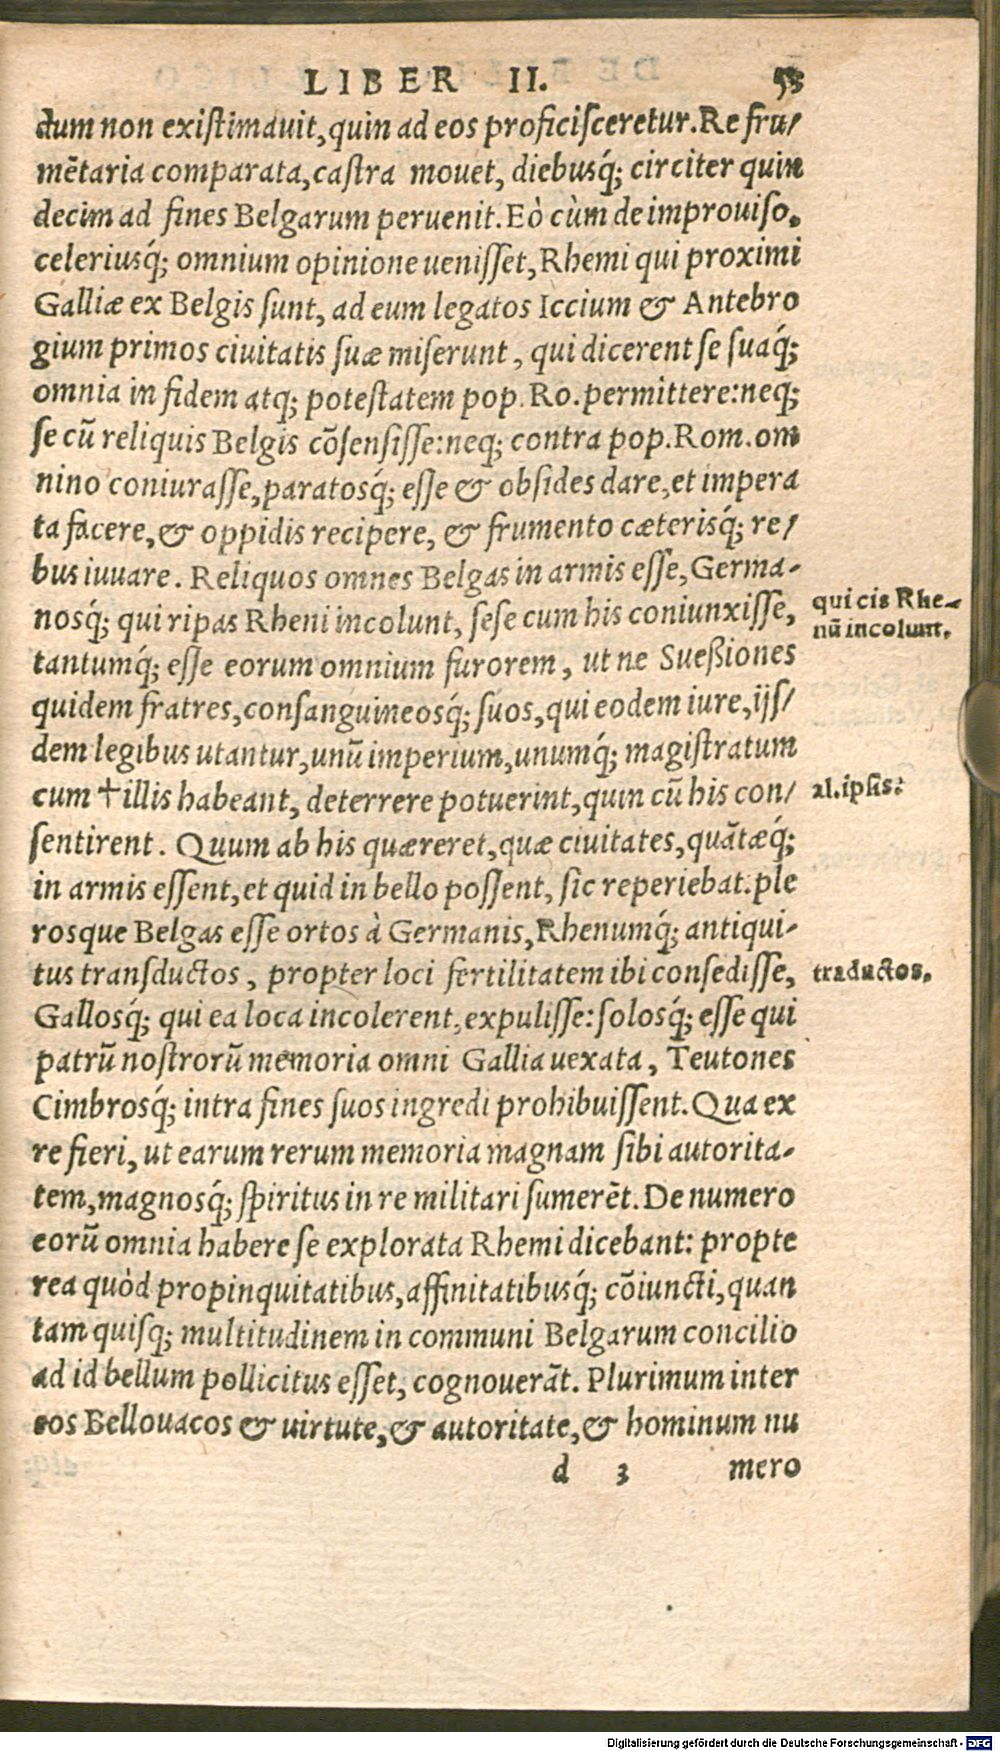 LIBER II. 53
dum non existimauit, quin ad eos proficisceretur. Re fru/
mẽtaria comparata, castra mouet, diebusq́; circiter quin
decim ad fines Belgarum peruenit. Eò cùm de improuiso,
celeriusq́; omnium opinione uenisset, Rhemi qui proximi
Galliæ ex Belgis sunt, ad eum legatos Iccium & Antebro
gium primos ciuitatis suæ miserunt, qui dicerent se suaq́;
omnia in fidem atq; potestatem pop. Ro. permittere: neq;
se cũ reliquis Belgis cõsensisse: neq; contra pop. Rom. om
nino coniurasse, paratosq́; esse & obsides dare, et impera
ta facere, & oppidis recipere, & frumento cæterisq́; re/
bus iuuare. Reliquos omnes Belgas in armis esse, Germa-
nosq́; qui ripas Rheni incolunt, sese cum his coniunxisse,
qui cis Rhe-
nũ incolunt.
tantumq́; esse eorum omnium furorem, ut ne Sueßiones
quidem fratres, consanguineosq́; suos, qui eodem iure, ijs/
dem legibus utantur, unũ imperium, unumq́; magistratum
cum †illis habeant, deterrere potuerint, quin cũ his con/
al. ipsis:
sentirent. Quum ab his quæreret, quæ ciuitates, quãtæq́;
in armis essent, et quid in bello possent, sic reperiebat. ple
rosque Belgas esse ortos à Germanis, Rhenumq́; antiqui-
tus transductos, propter loci fertilitatem ibi consedisse,
traductos.
Gallosq́; qui ea loca incolerent, expulisse: solosq́; esse qui
patrũ nostrorũ memoria omni Gallia uexata, Teutones
Cimbrosq́; intra fines suos ingredi prohibuissent. Qua ex
re fieri, ut earum rerum memoria magnam sibi autorita-
tem, magnosq́; spiritus in re militari sumerẽt. De numero
eorũ omnia habere se explorata Rhemi dicebant: propte
rea quòd propinquitatibus, affinitatibusq́; cõiuncti, quan
tam quisq; multitudinem in communi Belgarum concilio
ad id bellum pollicitus esset, cognouerãt. Plurimum inter
eos Bellouacos & uirtute, & autoritate, & hominum nu
d 3 mero
Digitalisierung gefördert durch die Deutsche Forschungsgemeinschaft - DFG